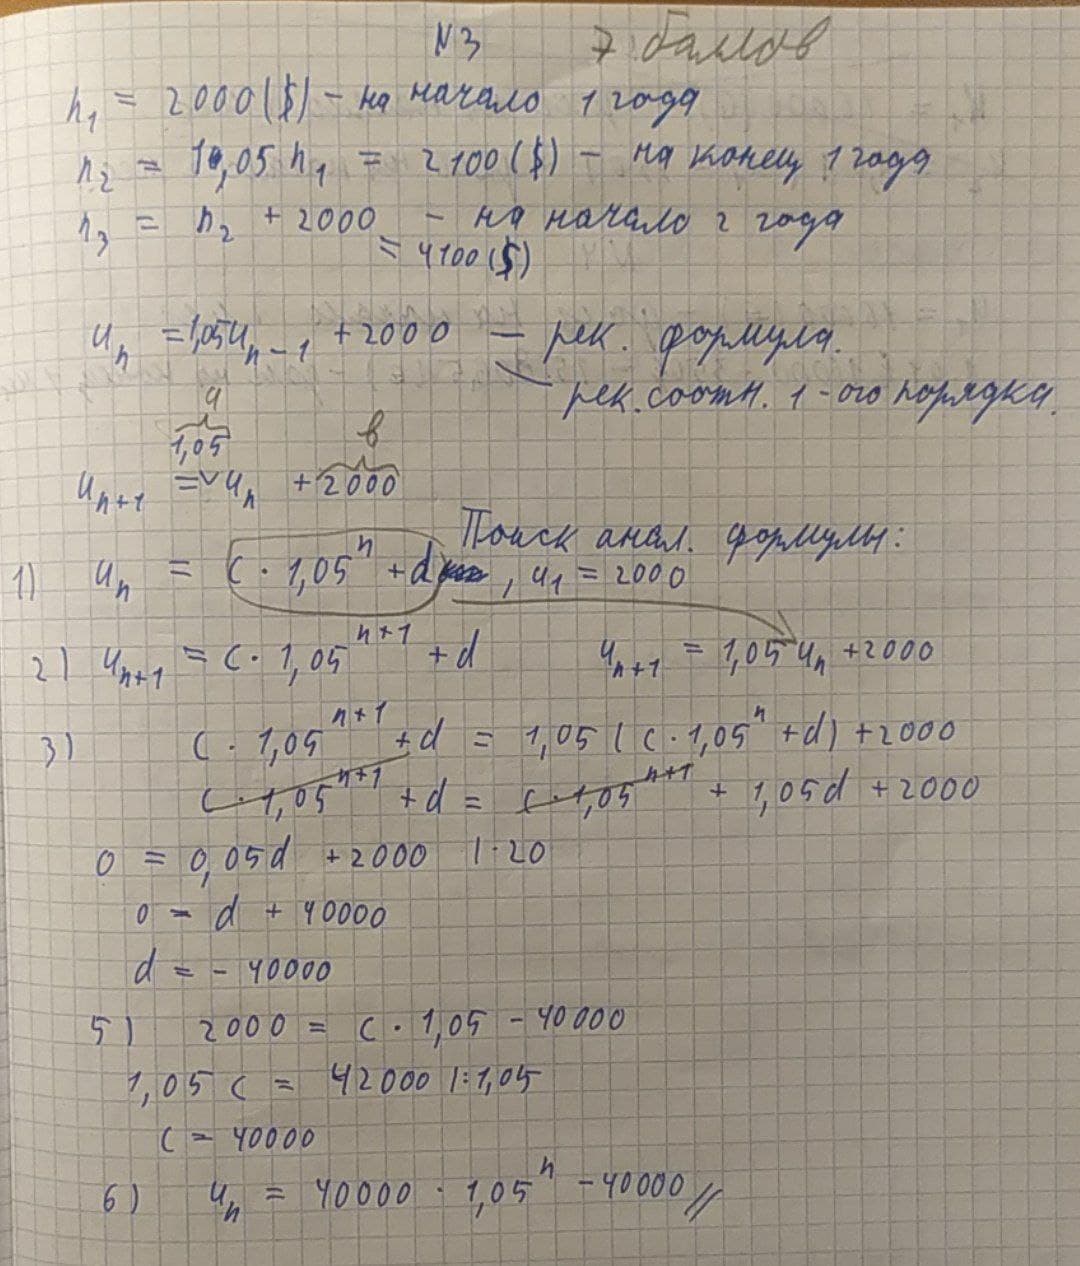 N3 7 баллов
h₁ = 2000($) – на начало 1 года
h₂ = 1,05 h₁ = 2100($) – на конец 1 года
h₃ = h₂ + 2000 – на начало 2 года
= 4100($)
uₙ = 1,05uₙ₋₁ + 2000 — рек. формула.
рек. соотн. 1-ого порядка.
a
1,05 в
uₙ₊₁ = uₙ + 2000
Поиск анал. формулы:
1) uₙ = c · 1,05ⁿ + d , u₁ = 2000
2) uₙ₊₁ = c · 1,05ⁿ⁺¹ + d uₙ₊₁ = 1,05 uₙ + 2000
3) c · 1,05ⁿ⁺¹ + d = 1,05 ( c · 1,05ⁿ + d) + 2000
c · 1,05ⁿ⁺¹ + d = c · 1,05ⁿ⁺¹ + 1,05d + 2000
0 = 0,05d + 2000 | · 20
0 = d + 40000
d = - 40000
5) 2000 = c · 1,05 - 40000
1,05 c = 42000 | : 1,05
c = 40000
6) uₙ = 40000 · 1,05ⁿ - 40000 //